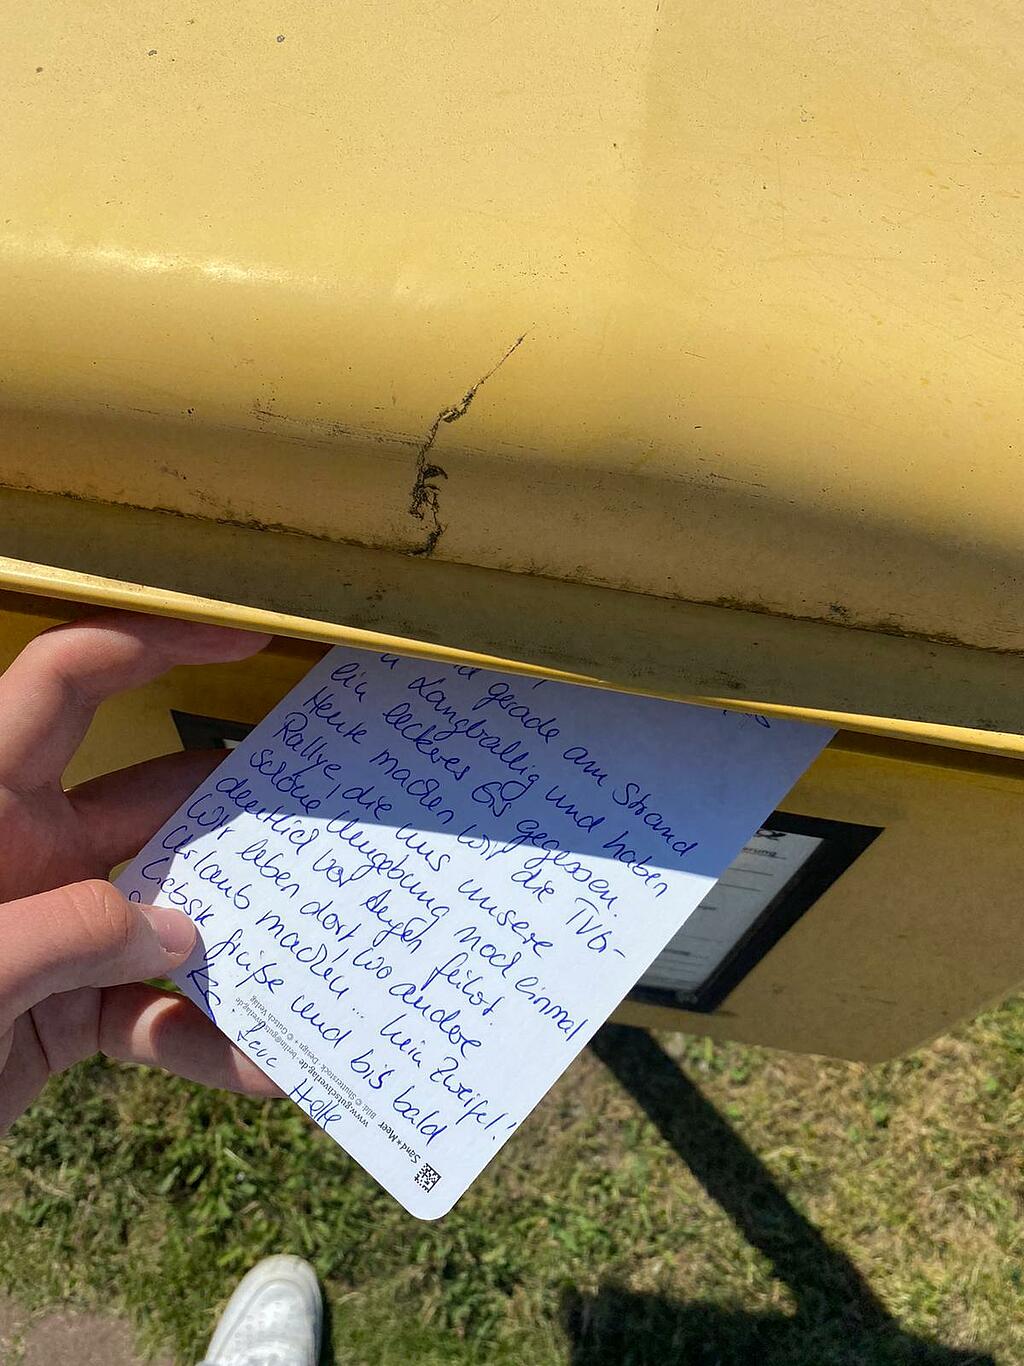 gerade am Strand
Langballig und haben
ein leckeres Eis gegessen.
Heute machen wir die TVB-
Rallye, die uns unsere
schöne Umgebung noch einmal
deutlich vor Augen führt.
Wir leben dort wo andere
Urlaub machen... kein Zweifel!
Liebste Grüße und bis bald
Helle
Sand*Meer
www.gutschverlag.de · berlin@gutschverlag.de
Bild: © Shutterstock · Design + © Gutsch Verlag